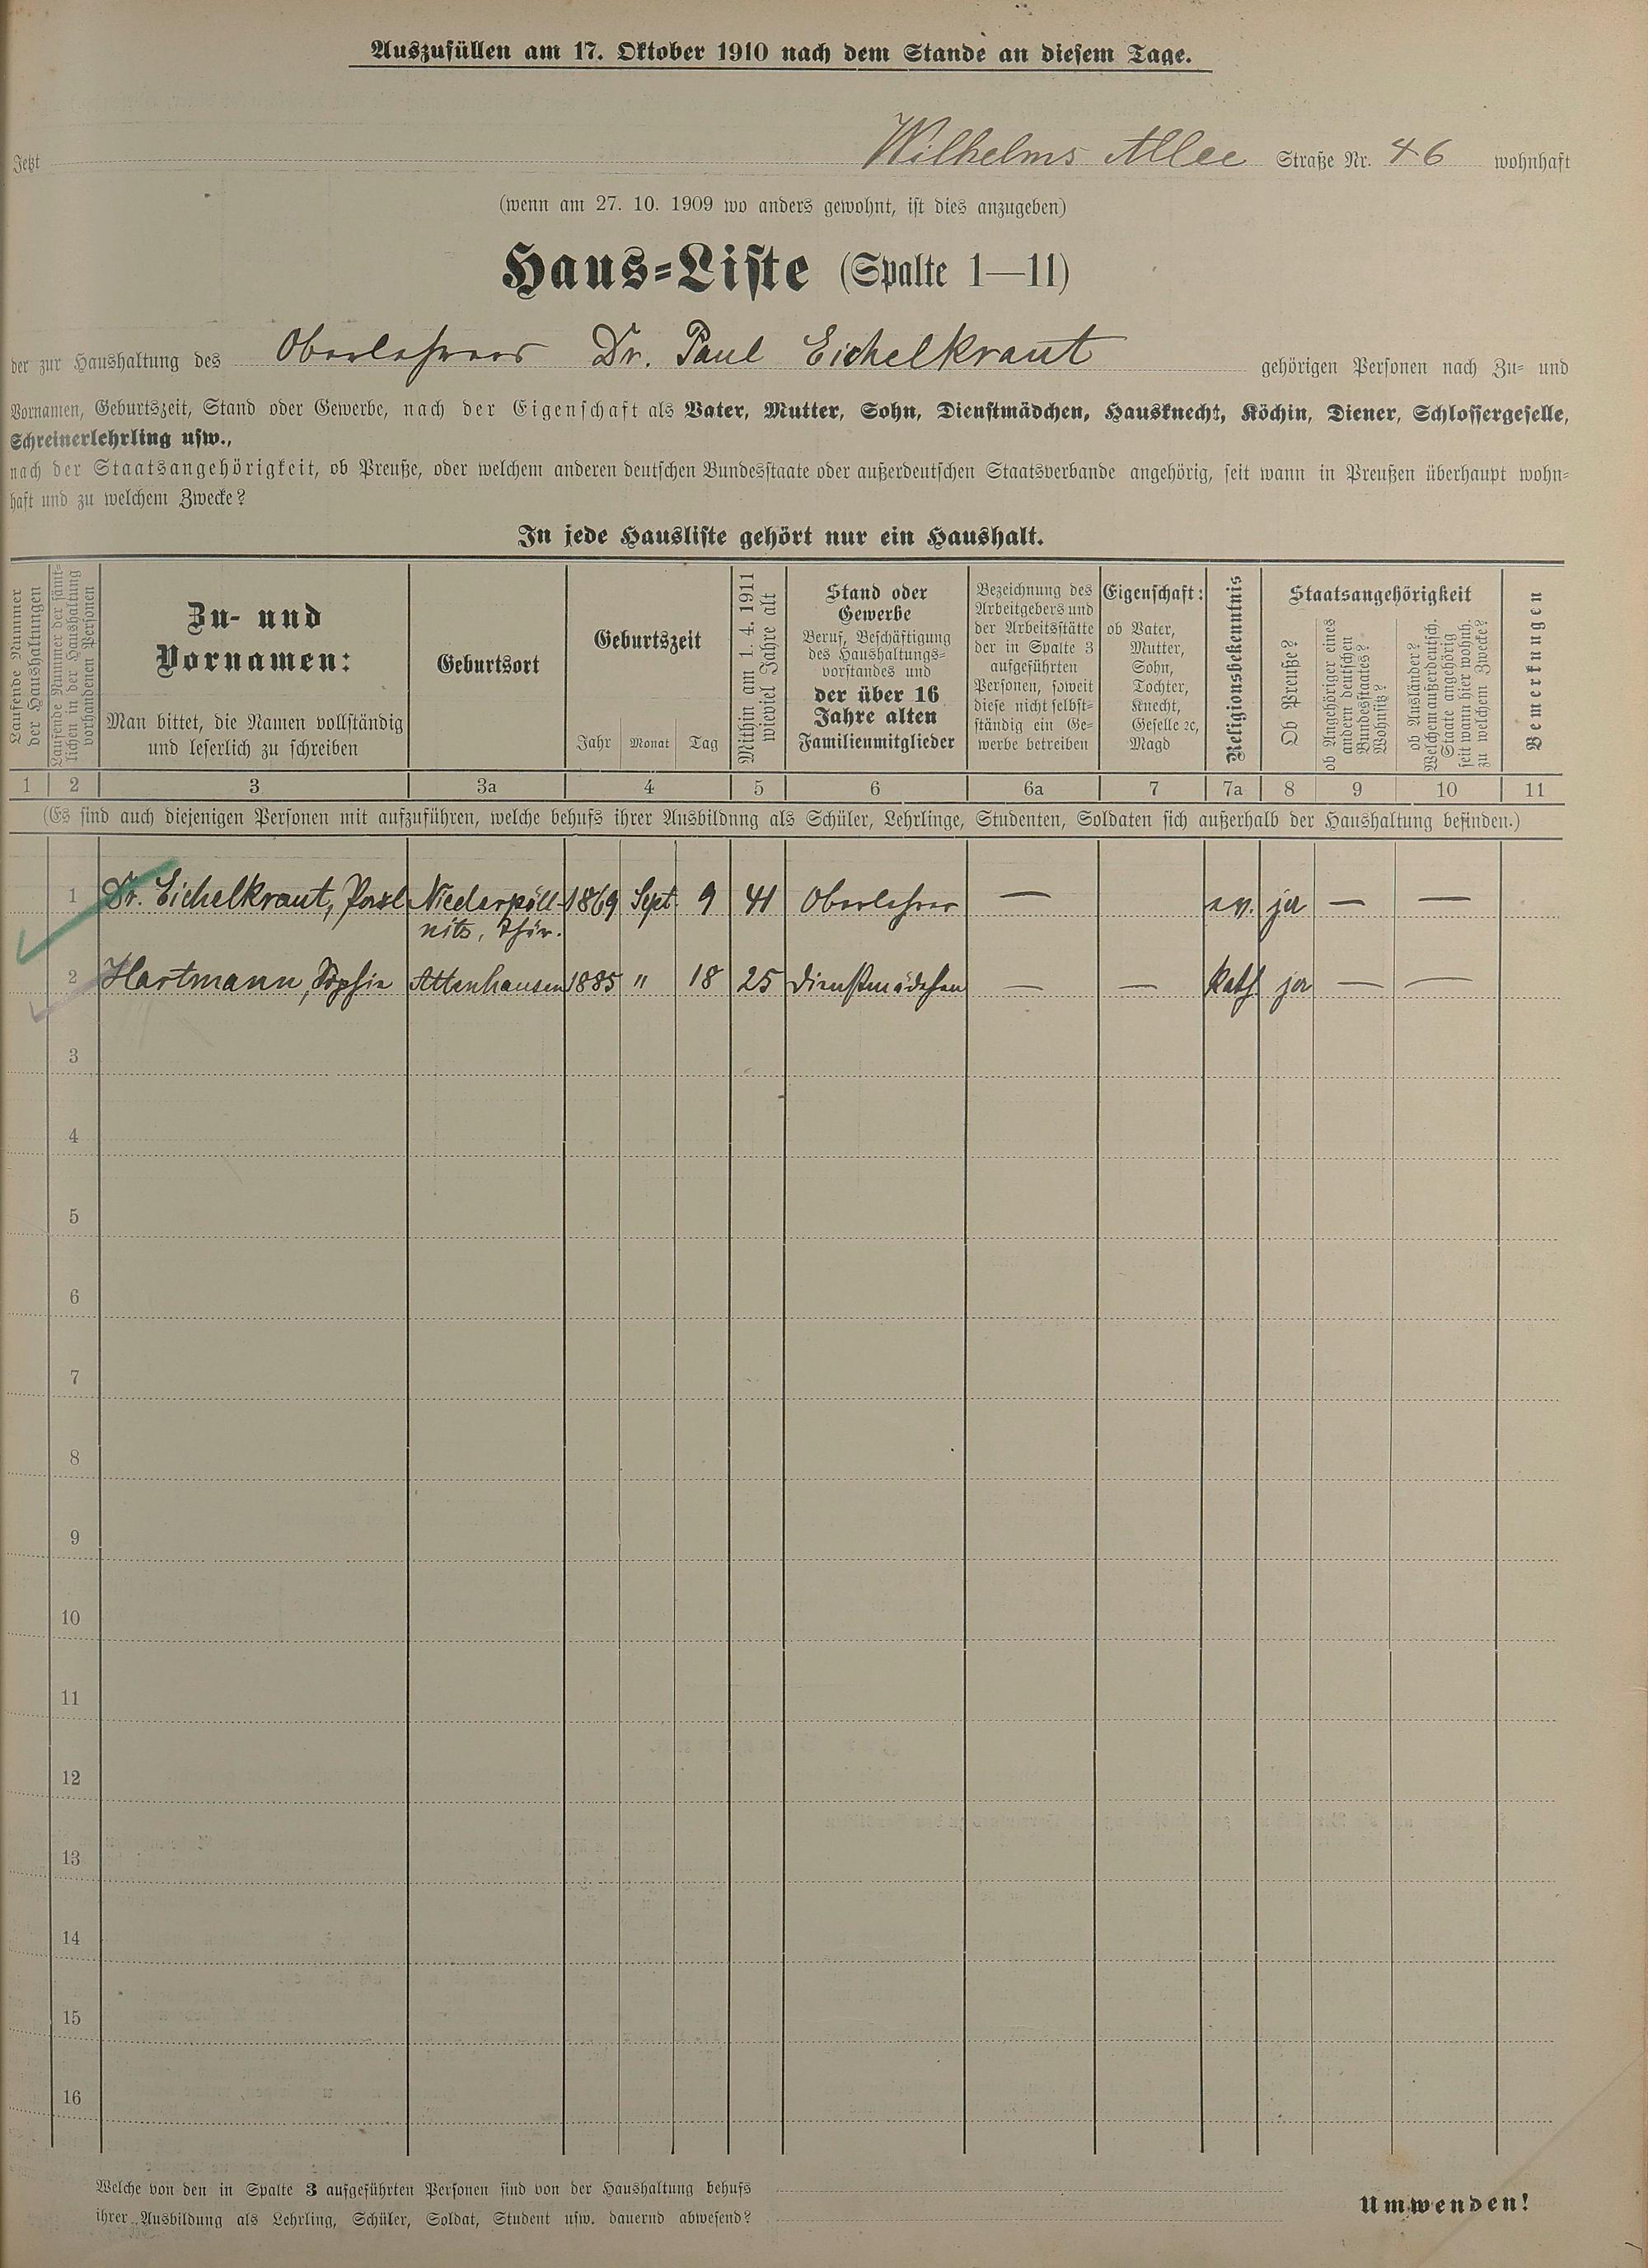 Auszufüllen am 17. Oktober 1910 nach dem Stande an diesem Tage.
Jetzt Wilhelms Allee Straße Nr. 46 wohnhaft
(wenn am 27. 10. 1909 wo anders gewohnt, ist dies anzugeben)
Haus=Liste (Spalte 1—11)
der zur Haushaltung des Oberlehrers Dr. Paul Eichelkraut gehörigen Personen nach Zu= und
Vornamen, Geburtszeit, Stand oder Gewerbe, nach der Eigenschaft als Vater, Mutter, Sohn, Dienstmädchen, Hausknecht, Köchin, Diener, Schlossergeselle,
Schreinerlehrling usw.,
nach der Staatsangehörigkeit, ob Preuße, oder welchem anderen deutschen Bundesstaate oder außerdeutschen Staatsverbande angehörig, seit wann in Preußen überhaupt wohn=
haft und zu welchem Zwecke?
In jede Hausliste gehört nur ein Haushalt.
Laufende Nummer
der Haushaltungen
Laufende Nummer der sämt=
lichen in der Haushaltung
vorhandenen Personen
Zu- und
Vornamen:
Man bittet, die Namen vollständig
und leserlich zu schreiben
Geburtsort
Geburtszeit
Jahr Monat Tag
Mithin am 1. 4. 1911
wieviel Jahre alt
Stand oder
Gewerbe
Beruf, Beschäftigung
des Haushaltungs=
vorstandes und
der über 16
Jahre alten
Familienmitglieder
Bezeichnung des
Arbeitgebers und
der Arbeitsstätte
der in Spalte 3
aufgeführten
Personen, soweit
diese nicht selbst=
ständig ein Ge=
werbe betreiben
Eigenschaft:
ob Vater,
Mutter,
Sohn,
Tochter,
Knecht,
Geselle ꝛc,
Magd
Religionsbekenntnis
Staatsangehörigkeit
Ob Preuße?
ob Angehöriger eines
andern deutschen
Bundesstaates?
Wohnsitz?
ob Ausländer?
Welchem außerdeutsch.
Staate angehörig
seit wann hier wohnh.
zu welchem Zwecke?
Bemerkungen
1 2 3 3a 4 5 6 6a 7 7a 8 9 10 11
(Es sind auch diejenigen Personen mit aufzuführen, welche behufs ihrer Ausbildung als Schüler, Lehrlinge, Studenten, Soldaten sich außerhalb der Haushaltung befinden.)
1 Dr. Eichelkraut, Paul Niederpöll- 1869 Sept. 9 41 Oberlehrer — ev. ja — —
nitz, Thür.
2 Hartmann, Sophie Attenhausen 1885 " 18 25 Dienstmädchen — — Kath ja — —
3
4
5
6
7
8
9
10
11
12
13
14
15
16
Welche von den in Spalte 3 aufgeführten Personen sind von der Haushaltung behufs
ihrer Ausbildung als Lehrling, Schüler, Soldat, Student usw. dauernd abwesend?
Umwenden!